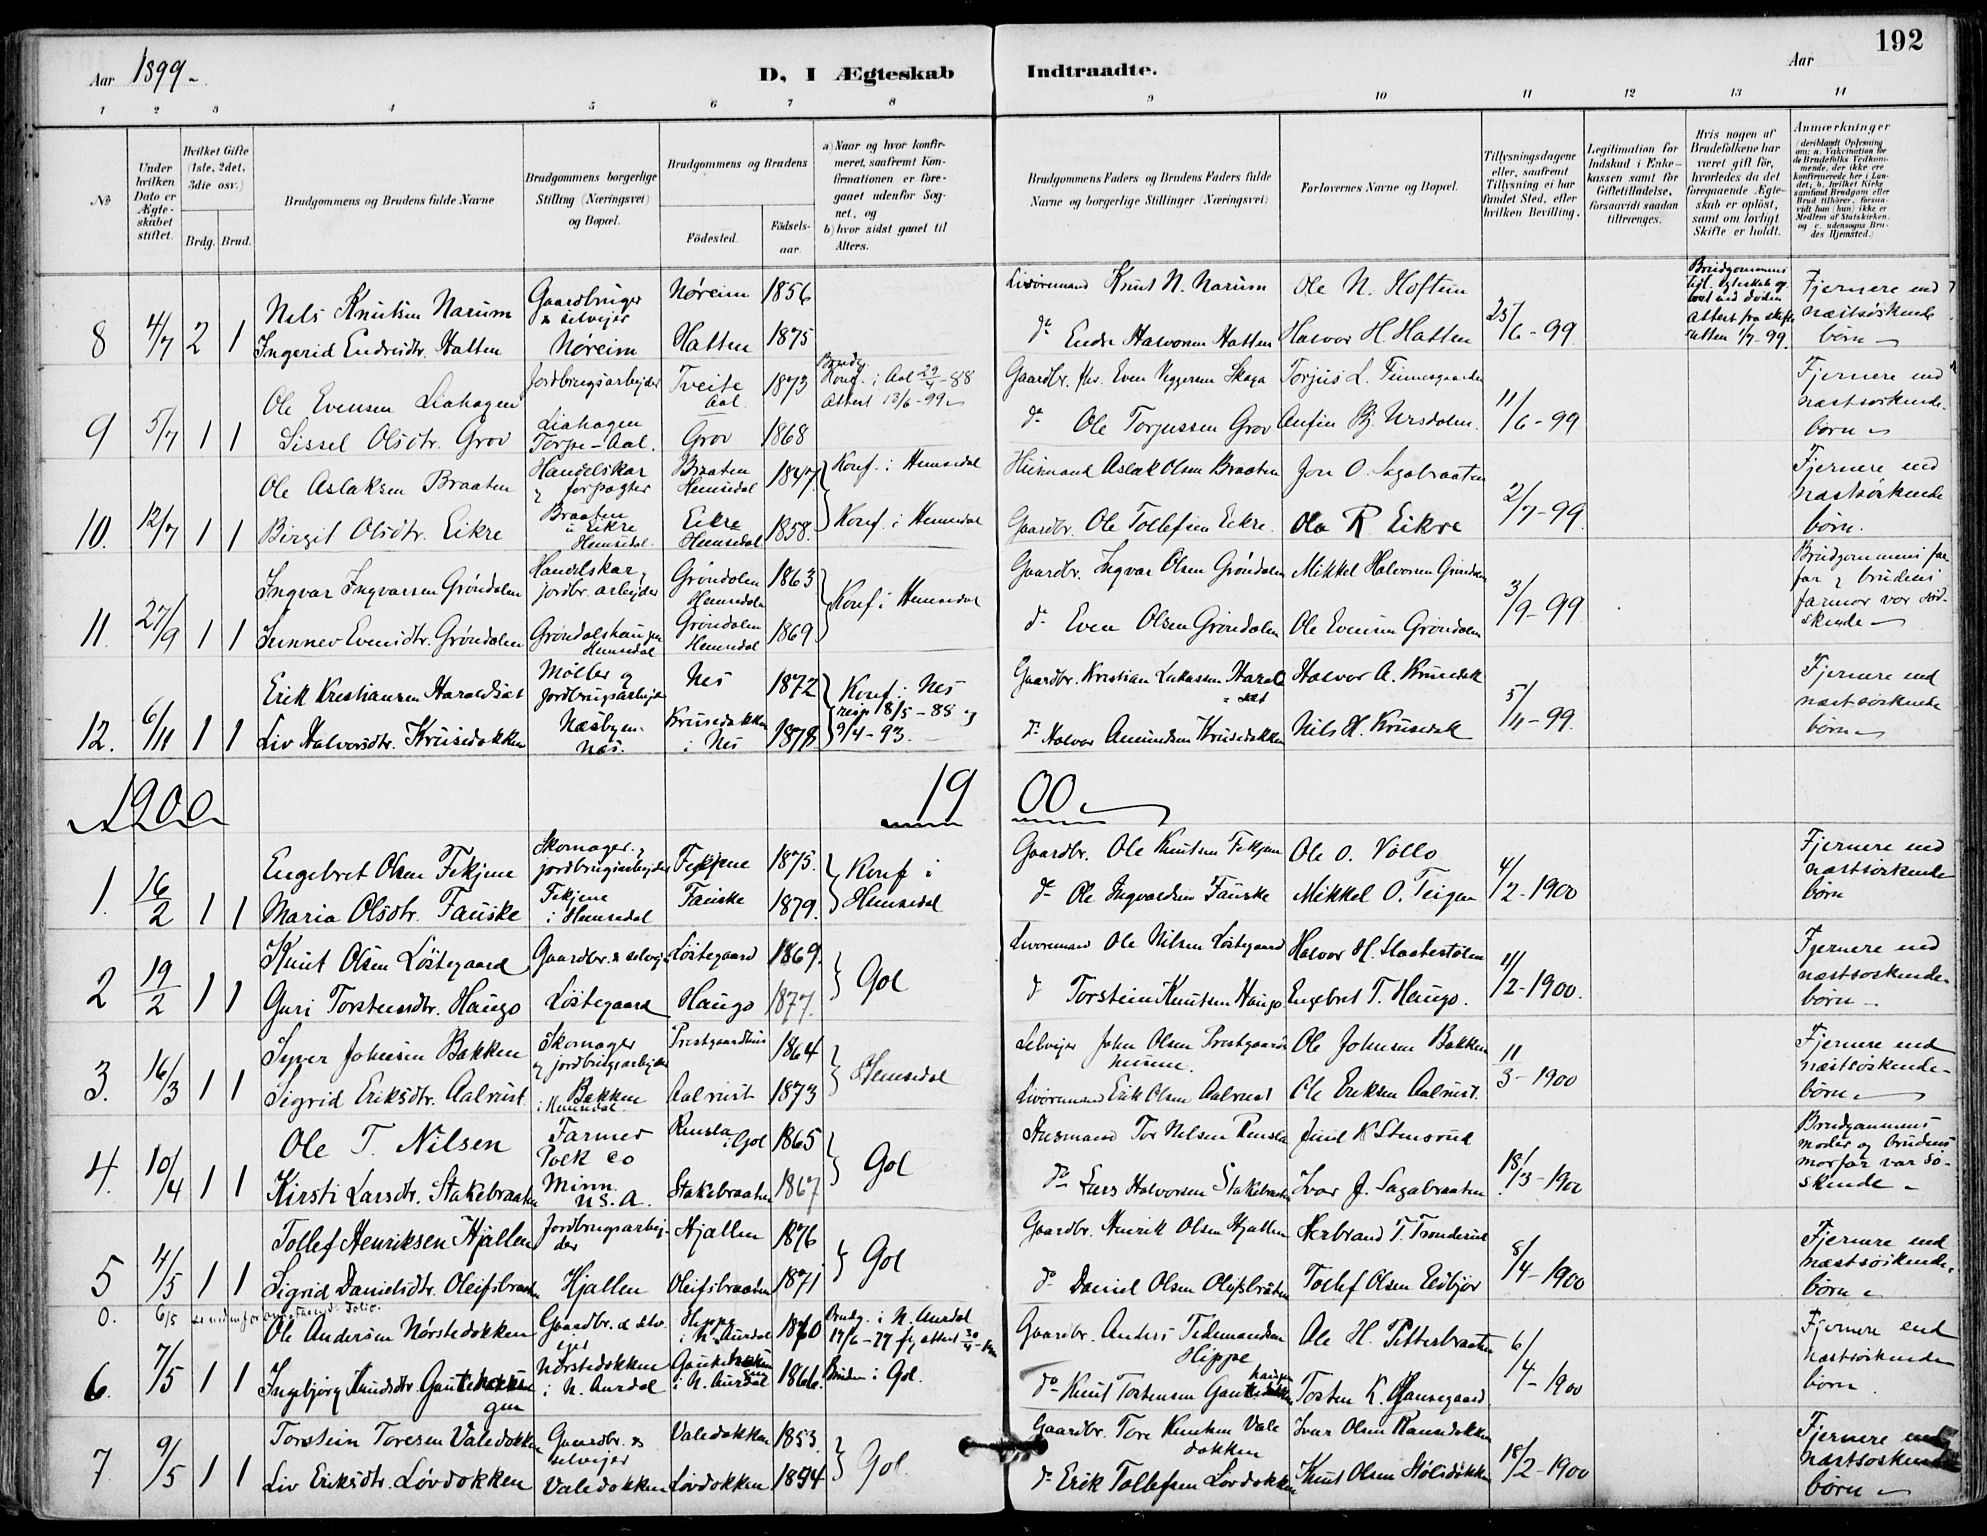 192
Aar 1899.
D, I Ægteskab Indtraadte.
Aar
1 2 3 4 5 6 7 8 9 10 11 12 13 14
No
Under hvilken Dato er Ægteskabet stiftet.
Hvilket Gifte (1ste, 2det, 3die osv.)
Brdg. Brud.
Brudgommens og Brudens fulde Navne
Brudgommens borgerlige Stilling (Næringsvei) og Bopæl.
Brudgommens og Brudens
Fødested. Fødselsaar.
a) Naar og hvor konfirmeret, saafremt Konfirmationen er foregaaet udenfor Sognet, og
b) hvor sidst gaaet til Alters.
Brudgommens Faders og Brudens Faders fulde Navne og borgerlige Stillinger (Næringsvei)
Forlovernes Navne og Bopæl.
Tillysningsdagene eller, saafremt Tillysning ei har fundet Sted, efter hvilken Bevilling.
Legitimation for Indskud i Enkekassen samt for Giftetilladelse, forsaavidt saadan tiltrænges.
Hvis nogen af Brudefolkene har været gift før, hvorledes da det foregaaende Ægteskab er opløst, samt om lovligt Skifte er holdt.
Anmærkninger (deriblandt Oplysning om: a. Vakcination for de Brudefolks Vedkommende, der ikke ere konfirmerede her i Landet; b. hvilket Kirkesamfund Brudgom eller Brud tilhører, forsaavidt han (hun) ikke er Medlem af Statskirken, og c. udensogns Brudes Hjemsted.)
8 4/7 2 1
Nils Knutsen Narum
Gaardbruger & selveier
Nøreim 1856
Livøremand Knut N. Narum
Ole N. Hoftun
25/6-99
Fjernere end næstsøskende børn
Ingerid Endresdtr. Hatten
Nøreim
Hatten 1875
do Endre Halvorsen Hatten
Halvor H. Hatten
9 5/7 1 1
Ole Evensen Liahagen
Jordbrugsarbejder
Tveite Aal 1873
Konf. i Aal 29/4-88
Attest 13/6-99
Gaardbr. Even Veggersen Skaga
Torjus L. Finnesgaarden
11/6-99
Fjernere end næstsøskende børn
Sissel Olsdtr. Grov
Liahagen Torpe-Aal.
Grov 1868
do Ole Torjussen Grov
10. 12/7 1 1
Ole Aslaksen Braaten
Handelskar & forpagter
Braaten Hemsedal 1847.
Konf. i Hemsedal
Husmand Aslak Olsen Braaten
Jon O. Sagabraaten
2/7-99
Fjernere end næstsøskende børn.
Birgit Olsdtr. Eikre
Braaten u Eikre Hemsedal.
Eikre Hemsedal 1858.
Konf. i Hemsedal
Gaardbr. Ole Tollefsen Eikre.
Ola R Eikre
11. 27/9 1 1
Ingvar Ingvarsen Grøndalen
Handelskar, jordbr. arbejder
Grøndalen Hemsedalen 1863
Konf i Hemsedal
Gaardbr. Ingvar Olsen Grøndalen
Mikkel Halvorsen Grøndalen
3/9-99
Brudgommens farfar & brudens farmor var søskende
Sunnev Evensdtr. Grøndalen
Grøndalshaugen Hemsedal
Grøndalen Hemsedal 1869
do Even Olsen Grøndalen
Ole Evensen Grøndalen
12. 6/11 1 1
Erik Kristiansen Haraldset
Møller og jordbrugsarbejder
Nes 1872
Konf i Nes resp 18/5-88 og 9/4-93.
Gaardbr. Kristian Lukassen Haraldset
Halvor A. Krusedok
5/11-99.
Fjernere end næstsøskende børn
Liv Halvorsdtr. Krusedokken
Næsbyen Næs.
Krusedokken i Nes 1878
do Halvor Amundsen Krusedokken
Nils H. Krusedok
1900 1900
1. 16/2 1 1
Engebret Olsen Fekjene
Skomager & jordbrugsarbejder
Fekjene 1875.
Konf i Hemsedal
Gaardbr. Ole Knutsen Fekjene
Ole O. Vøllo
4/2-1900
Fjernere end næstsøskende børn
Maria Olsdtr. Fauske
Fekjene i Hemsedal
Fauske 1879.
do Ole Ingvaldsen Fauske
Mikkel O. Teigen
2 19/2 1 1
Knut Olsen Løstegaard
Gaardbr. & selvejer
Løstegaard 1869.
Gol
Livøremand Ole Nilsen Løstegaard
Halvor H. Slaatestølen
11/2-1900.
Fjernere end næstsøskende børn
Guri Torsteinsdtr. Haugo
Løstegaard
Haugo 1877.
do Torstein Knutsen Haugo
Engebret T. Haugo.
3. 16/3 1 1
Syver Johnsen Bakken
Skomager & jordbrugsarbejder
Prestgaardhus 1864
Hemsedal
Selvejer John Olsen Prestgaardshusene.
Ole Johnsen Bakken
11/3-1900
Fjernere end næstsøskende børn
Sigrid Eriksdtr. Aalrust
Bakken i Hemsedal.
Aalrust 1873
Livøremand Erik Olsen Aalrust
Ole Eriksen Aalrust.
4. 10/4 1 1
Ole T. Nilsen
Farmer Polk Co
Rensla i Gol 1865
Gol
Husmand Tor Nilsen Rensla
K Stensrud
18/3-1900
Brudgommens moder og brudens morfar var søskende
Kirsti Larsdtr. Stakebraaten
Minn. U.S.A.
Stakebraaten 1867
do Lars Halvorsen Stakebraaten
Ivar J. Sagabraaten
5 4/5 1 1
Tollef Henriksen Hjallen
Jordbrugsarbejder
Hjallen 1876
Gol
Gaardbr. Henrik Olsen Hjallen
Herbrand T. Trønderud
8/4-1900
Fjernere end næstsøskende børn
Sigrid Danielsdtr. Oleifsbraaten
Hjallen
Oleifsbraaten 1871
do Daniel Olsen Olefsbråten
Tollef Olsen Eidbjør
0. 6/5
6. 7/5 1 1
Ole Andersen Nørstedokken
Gaardbr. & selvejer
Hippe i N. Aurdal 1870
Brudg. i N. Aurdal
Gaardbr. Anders Tidemandsen Hippe
Ole H. Petterbraaten
6/4-1900
Fjernere end næstsøskende børn
Ingebjørg Knudsdtr.
Nørstedokken i N. Aurdal
i N. Aurdal 1866.
Bruden i Gol.
do Knut Tostensen
Tosten K.
7. 9/5 1 1
Torstein Toresen Valedokken
Gaardbr. & selvejer
Valedokken 1853.
Gol.
Gaardbr. Tore Knutsen Valedokken
Ivar Olsen Ransedokken
18/2-1900
Fjernere end næstsøskende børn
Liv Eriksdtr. Løvdokken
Valedokken
Løvdokken 1854
do Erik Tollefsen Løvdokken
Knut Olsen Hølsdokken